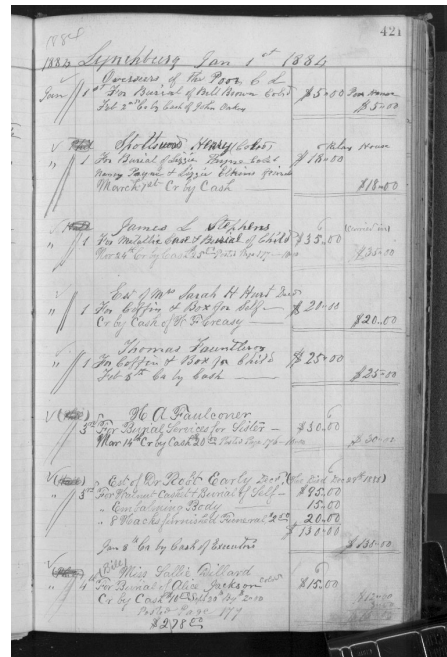 421
1884
1884 Lynchburg Jan 1st 1884
Overseers of the Poor C L
Jan 1st For Burial of Bill Brown Cold $5.00 Poor House
Feb 2nd Cr by Cash of John Oakes $5.00
Spottswood Henry Cold
" 1 For Burial of Lizzie Payne Cold $18.00
Nancy Payne & Lizzie
March 1st Cr by Cash $18.00
James L Stephens (Carried in)
" 1 For Metallic Case & Burial of Child $35.00
Mar 24th Cr by Cash $35.00
Est of Mrs Sarah H Hurt Decd
" 1 For Coffin & Box for Self $20.00
Cr by Cash of W F Creasy $20.00
Thomas Fauntleroy
" 1 For Coffin & Box for Child $25.00
Feb 8th Cr by Cash $25.00
H A Faulconer
" 3rd For Burial Services for Sister $30.00
Mar 14th Cr by Cash $30.00
Est of Dr Robt Early Decd
" 3rd For Walnut Casket & Burial of Self $95.00
" Embalming Body 15.00
" 8 Hacks furnished Funeral 2.50 20.00
$130.00
Jan 8th Cr by Cash of Executors $130.00
Miss Sallie Dillard
" 4 For Burial of Alice Jackson Cold $15.00
Cr by Cash
Posted Page 179
$278.00